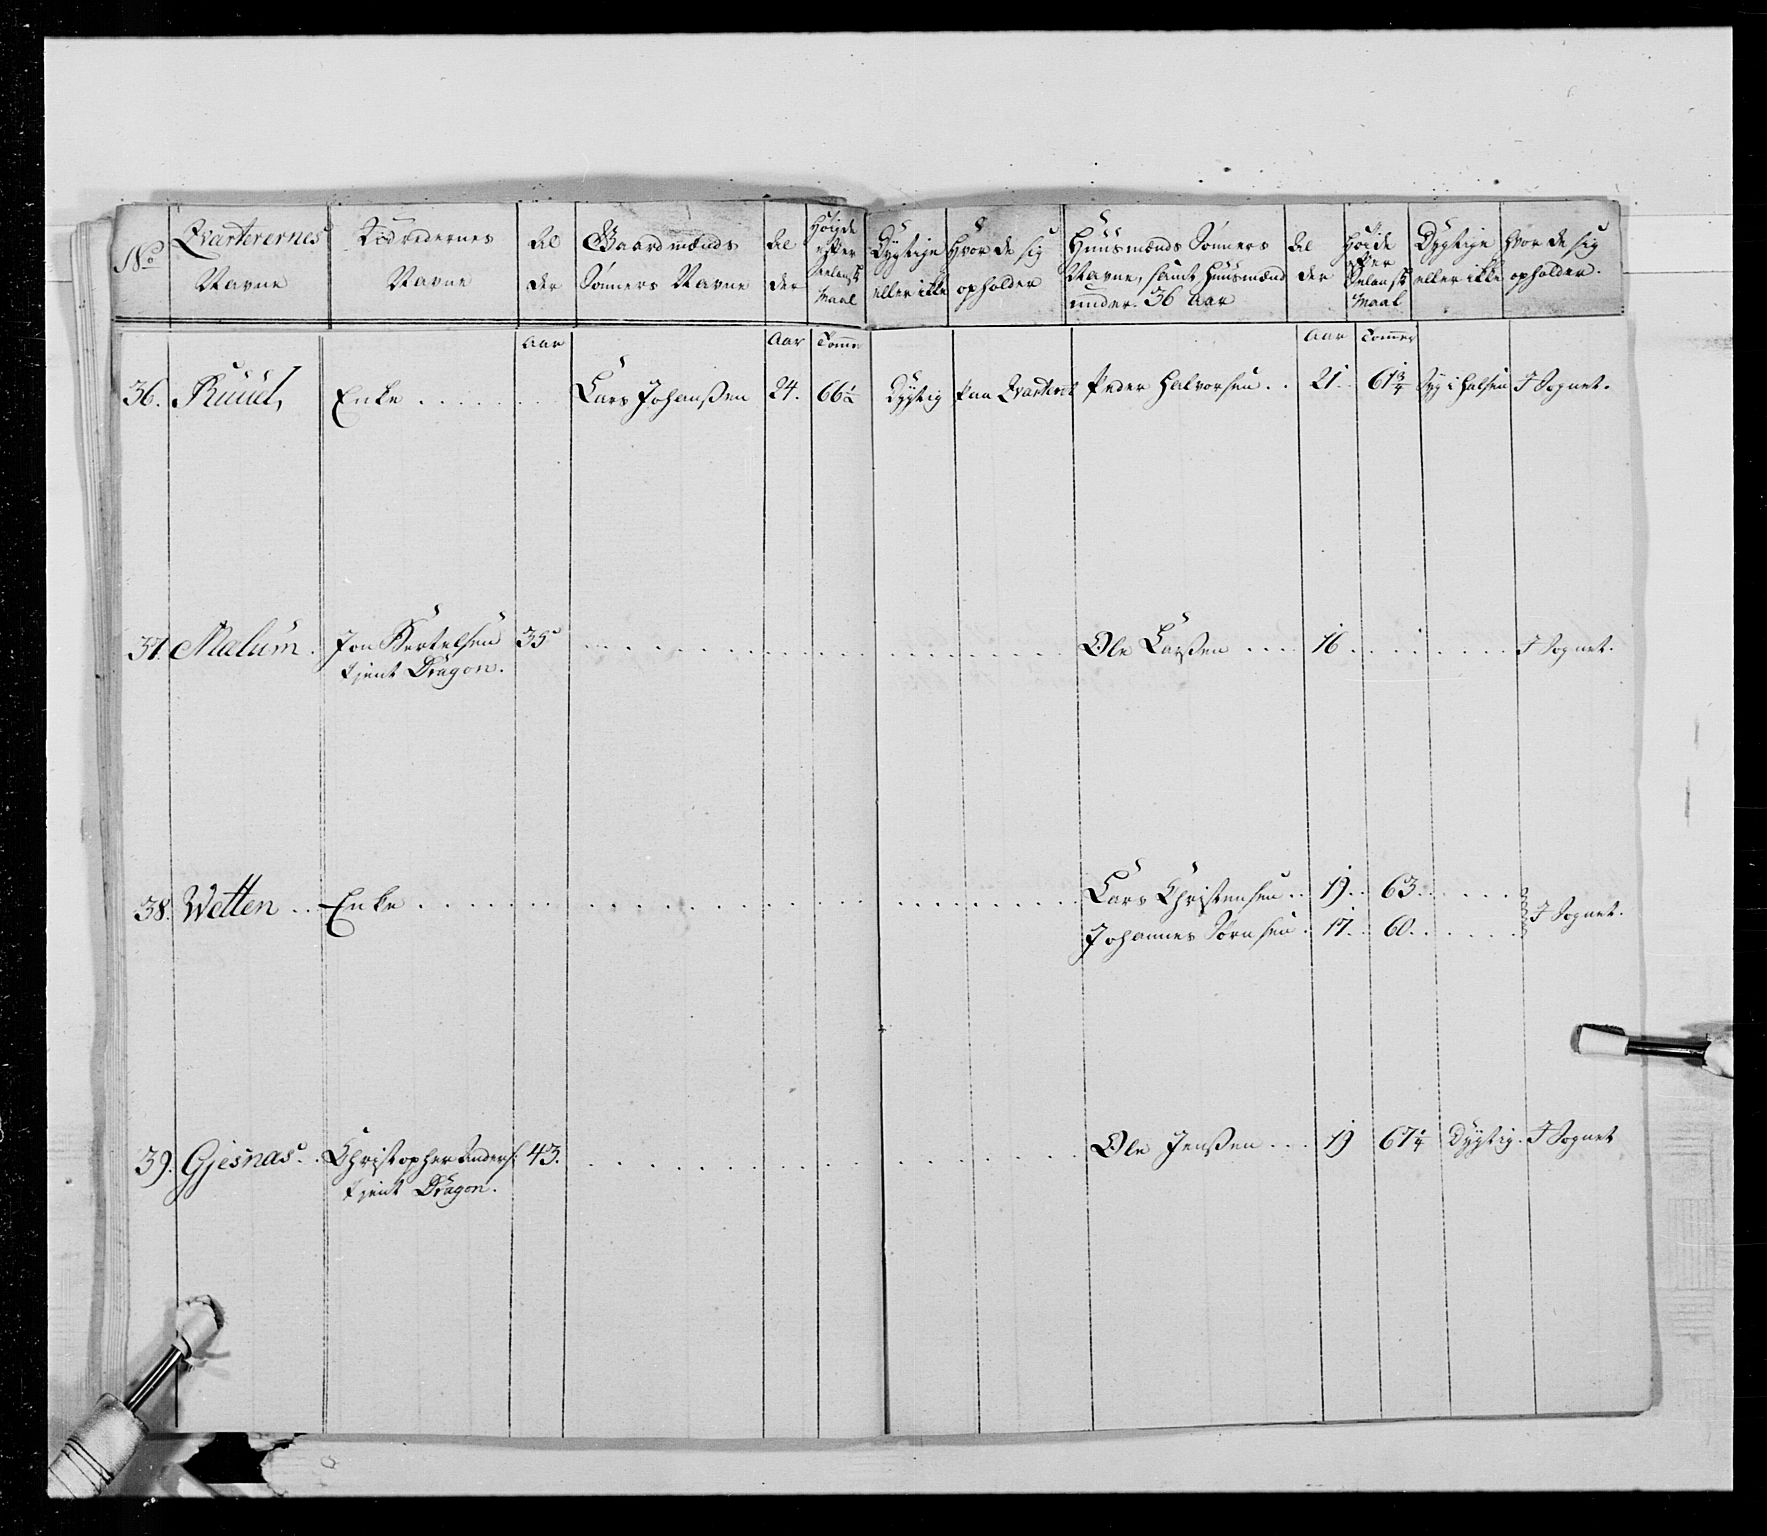 No | Qvarterernes Navne | Udredernes Navne | Al der | Gaardmænds Sønners Navne | Al der | Høijde efter Selansk Maal | Dygtige eller ikke | Hvor de sig opholder | Huusmænds Sønners Navne, samt Huusmænd under 36 Aar | Al der | Høide efter Selansk Maal | Dygtige eller ikke | Hvor de sig opholder.
Aar | Aar | Tomme | Aar | Tommer
36. | Ruud, | Enke . . . . . . | Lars Johanßen | 24. | 66½ | Dygtig | Paa Qvarteret | Peder Halvorsen . . | 21. | 61¾ | Syg i Halsen | I Sognet.
37. | Malum. | Jon Bertelsen | 35 | . . . . . | Ole Larßen . . . . | 16. | . . . . | I Sognet.
tjent Dragon.
38. | Wetten . . | Enke . . . . . | Lars Christensen . . | 19. | 63. | . . . . | I Sognet.
Johannes Sørnsen . | 17. | 60. | . . . .
39. | Gjesnas . . | Christopher Anders. | 43. | . . . . . | Ole Jenßen . . . | 19 | 67¼ | Dygtig. | I Sognet
tjent Dragon.